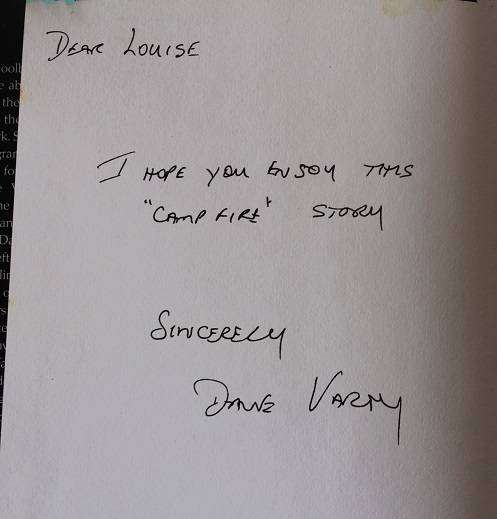 DEAR LOUISE
I HOPE YOU ENJOY THIS
"CAMPFIRE" STORY
SINCERELY
DANE VARTY